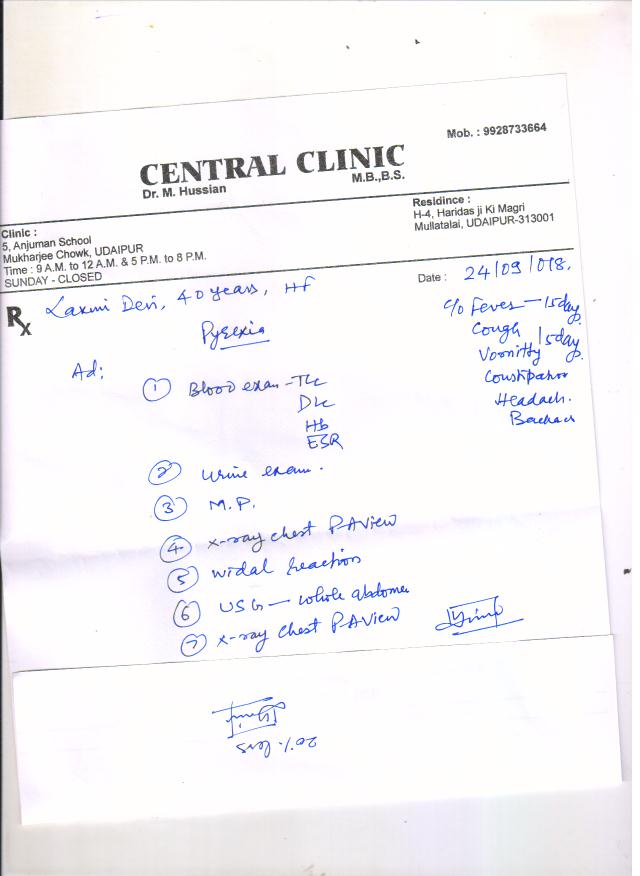 Mob. : 9928733664
CENTRAL CLINIC
Dr. M. Hussian M.B.,B.S.
Clinic :
5, Anjuman School
Mukharjee Chowk, UDAIPUR
Time : 9 A.M. to 12 A.M. & 5 P.M. to 8 P.M.
SUNDAY - CLOSED
Residince :
H-4, Haridas ji Ki Magri
Mullatalai, UDAIPUR-313001
Date : 24/09/018.
Rx Laxmi Devi, 40 years, Hf
Pyrexia
C/o Fever - 15day.
Cough 15day.
Vomitty
Constipation
Headach.
Ad;
1 Blood exam - TLC
DLC
Hb
ESR
2 Urine exam.
3 M.P.
4 x-ray chest PAView
5 widal reaction
6 USG - whole abdomen
7 x-ray chest PAView
20% less